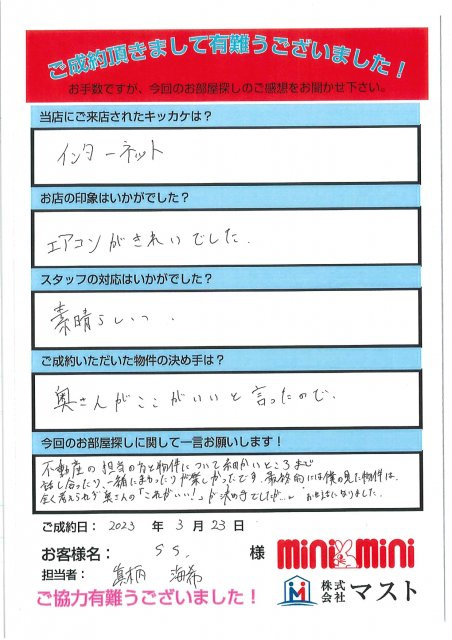 ご成約頂きまして有難うございました！
お手数ですが、今回のお部屋探しのご感想をお聞かせ下さい。
当店にご来店されたキッカケは？
インターネット
お店の印象はいかがでした？
エアコンがきれいでした.
スタッフの対応はいかがでした？
素晴らしいっ.
ご成約いただいた物件の決め手は？
奥さんがここがいいと言ったので.
今回のお部屋探しに関して一言お願いします！
不動産の担当の方と物件について細かいところまで
話し合ったり、一緒にまわったりが楽しかったです。最終的には僕の見た物件は、
全く考えられず奥さんの「これがいい!」が決め手でしたが…。お世話になりました。
ご成約日： 2023 年 3 月 23 日
お客様名： S S. 様
mini mini
担当者： 真柄 海希
株式会社 マスト
ご協力有難うございました！